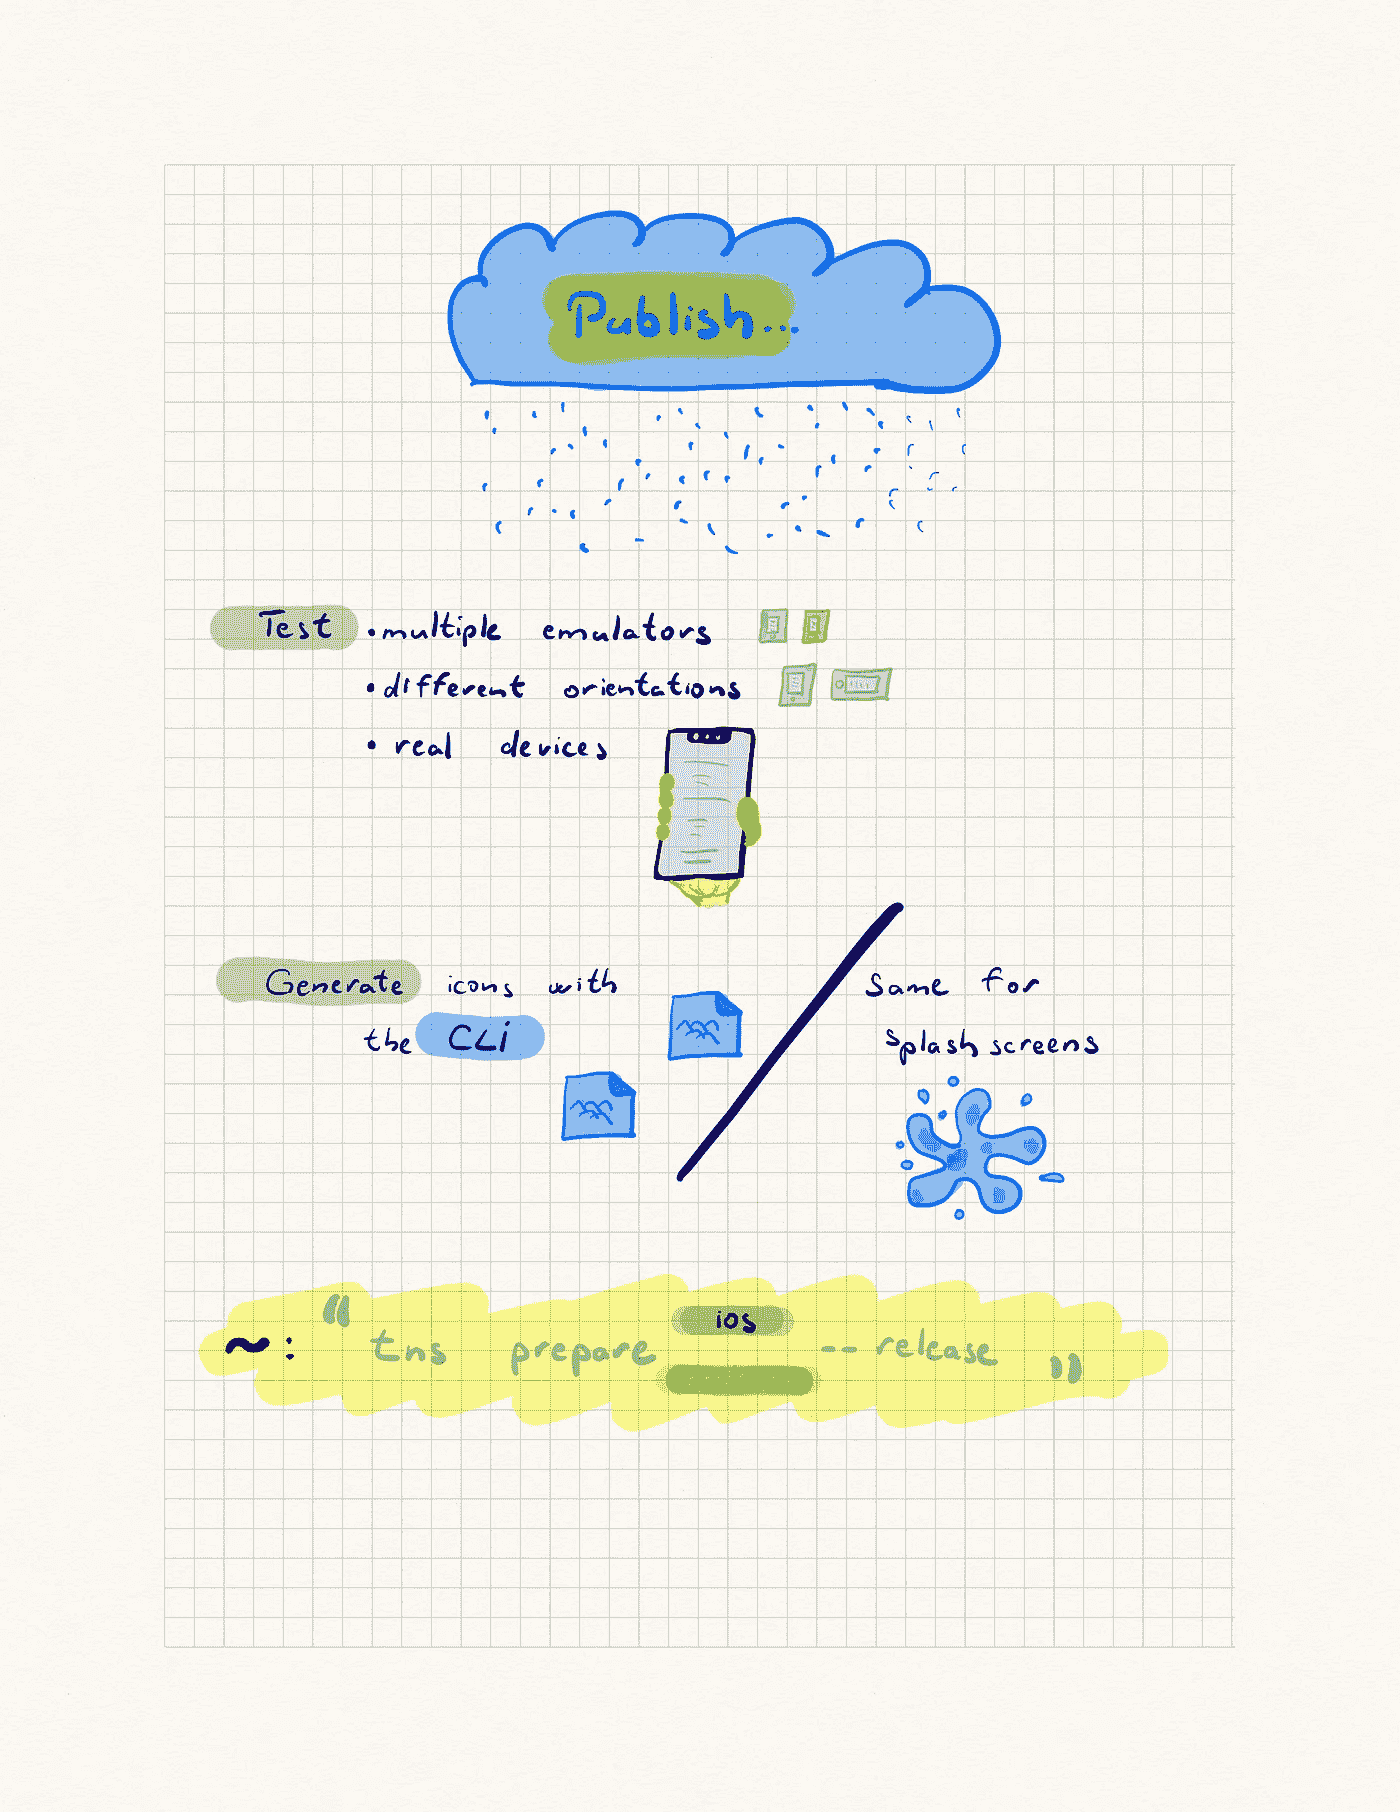 Publish...
Test • multiple emulators
• different orientations
• real devices
Generate icons with
the CLi
Same for
splash screens
~: “ tns prepare ios -- release ”